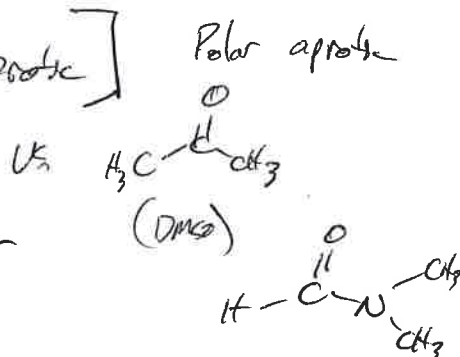 protic] Polar aprotic
O
Vs H₃C C CH₃
(DMSO)
O
H - C - N CH₃
CH₃